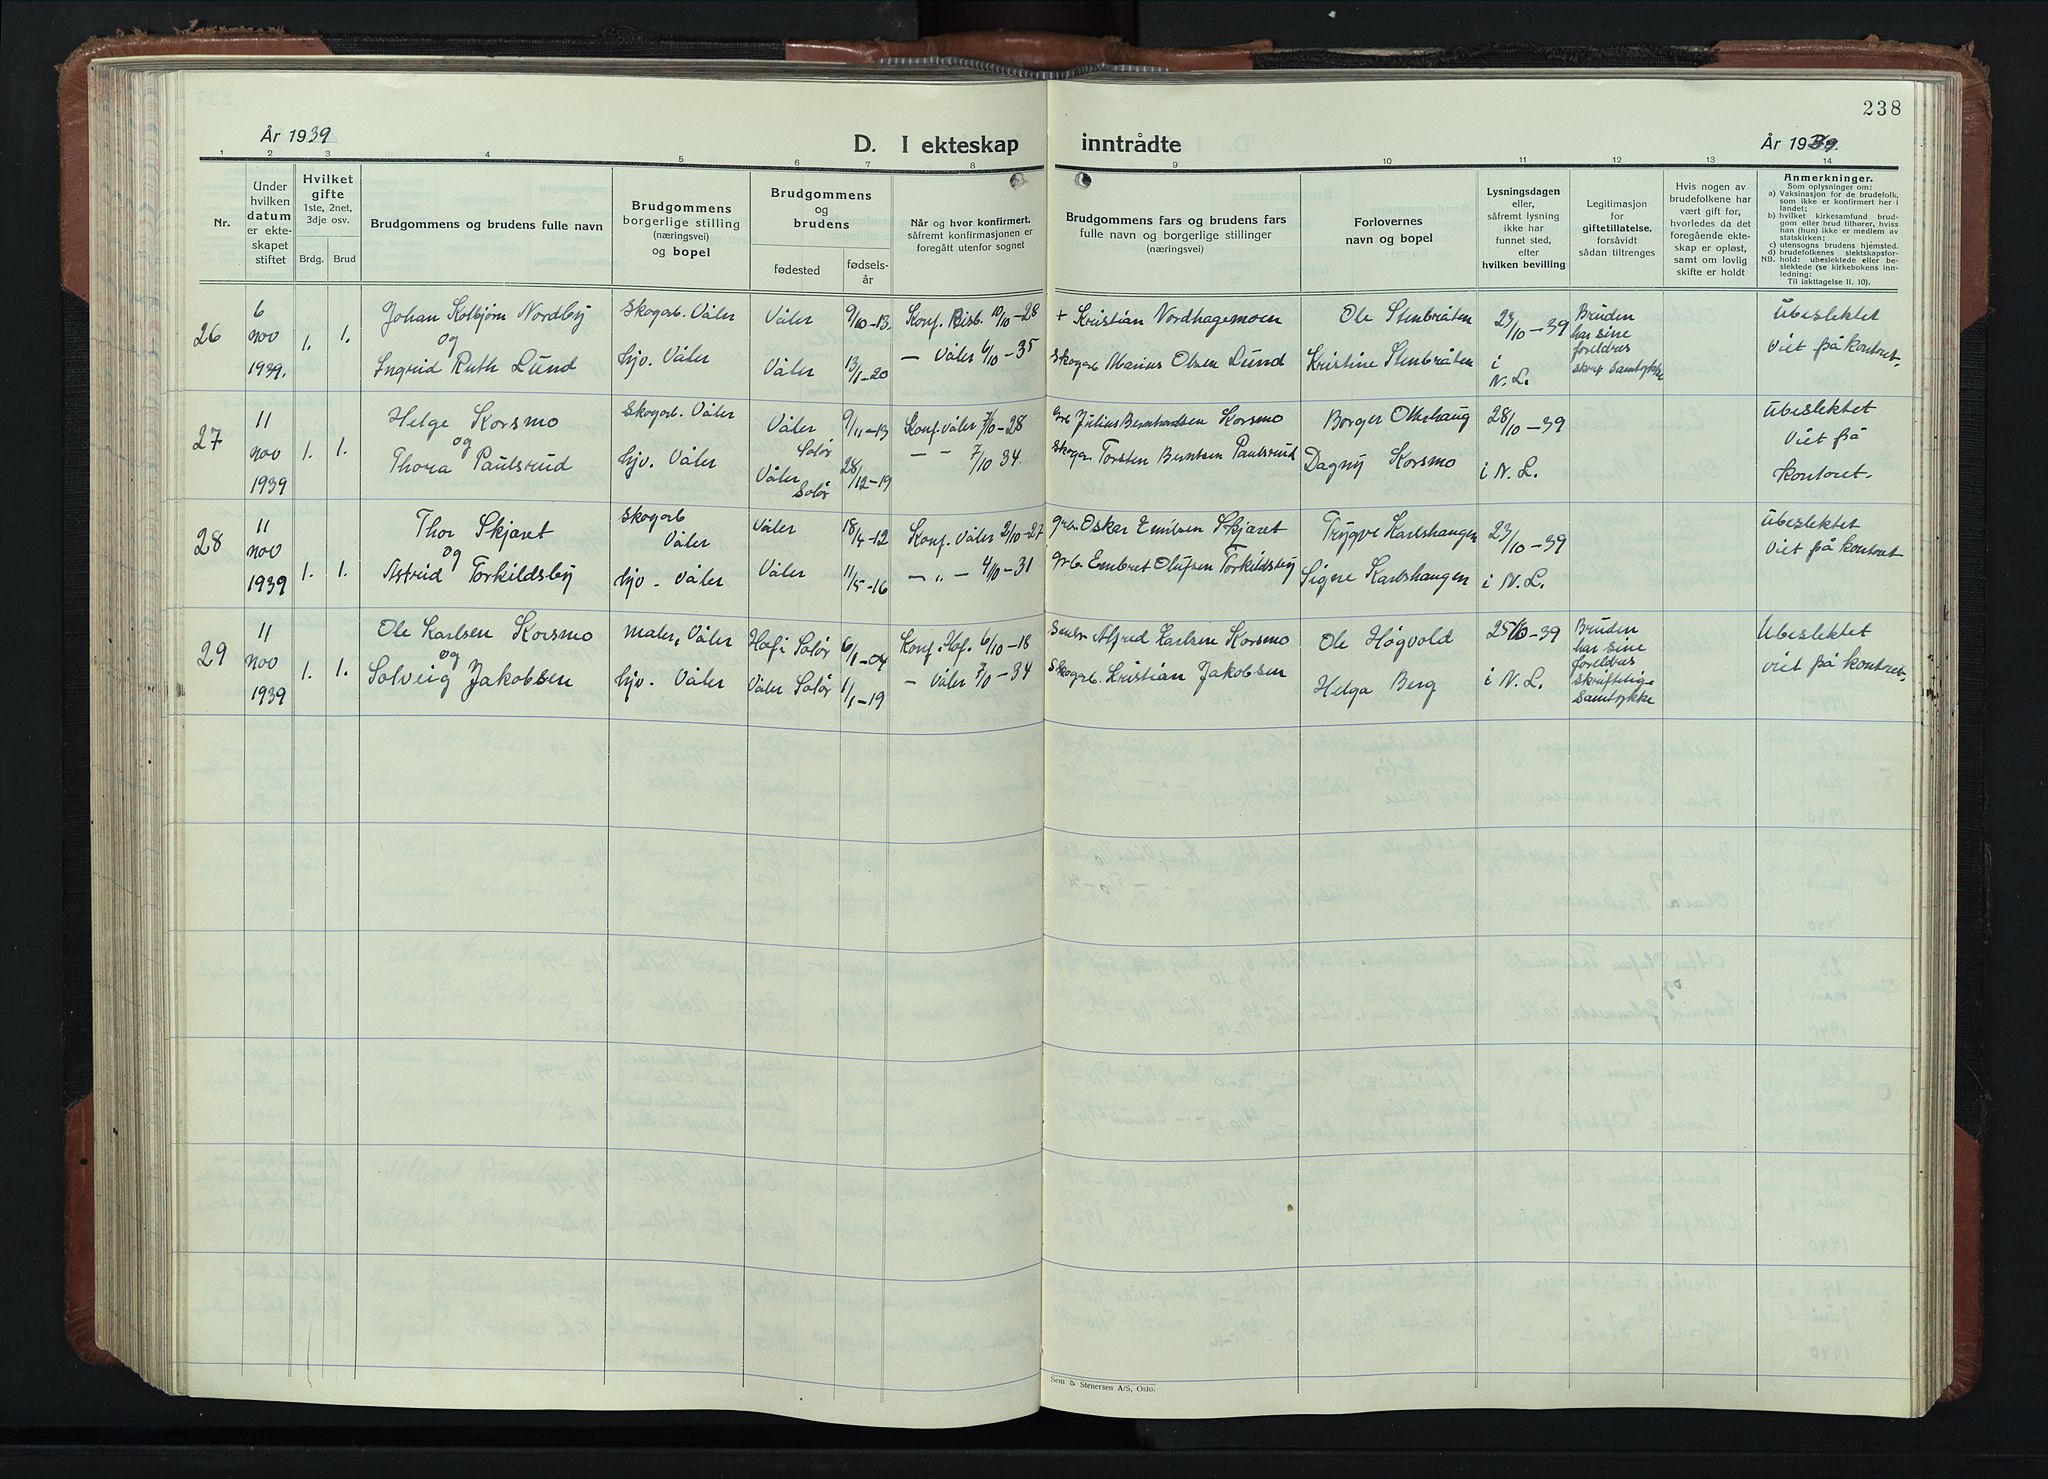 238
År 1939
D. I ekteskap inntrådte
År 1939.
1 2 3 4 5 6 7 8 9 10 11 12 13 14
Nr.
Under
hvilken
datum
er ekte-
skapet
stiftet
Hvilket
gifte
1ste, 2net,
3dje osv.
Brdg. Brud
Brudgommens og brudens fulle navn
Brudgommens
borgerlige stilling
(næringsvei)
og bopel
Brudgommens
og
brudens
fødested
fødsels-
år
Når og hvor konfirmert,
såfremt konfirmasjonen er
foregått utenfor sognet
Brudgommens fars og brudens fars
fulle navn og borgerlige stillinger
(næringsvei)
Forlovernes
navn og bopel
Lysningsdagen
eller,
såfremt lysning
ikke har
funnet sted,
efter
hvilken bevilling
Legitimasjon
for
giftetillatelse,
forsåvidt
sådan tiltrenges
Hvis nogen av
brudefolkene har
vært gift før,
hvorledes da det
foregående ekte-
skap er opløst,
samt om lovlig
skifte er holdt
Anmerkninger.
Som oplysninger om:
a) Vaksinasjon for de brudefolk,
som ikke er konfirmert her i
landet;
b) hvilket kirkesamfund brud-
gom eller brud tilhører, hviss
han (hun) ikke er medlem av
statskirken;
c) utensogns brudens hjemsted.
d) brudefolkenes slektskapsfor-
NB. hold: ubeslektede eller be-
slektede (se kirkebokens inn-
ledning:
Til iakttagelse II. 10).
26
6
nov
1939.
1. 1.
Johan Kolbjørn Nordby
og
Ingrid Ruth Lund
Skogarb. Våler
hjv. Våler
Våler 9/10-13.
Våler 13/1-20
Konf. Bisb. 10/10-28
— Våler 6/10-35
+ Kristian Nordhagemoen
Skogarb Marius Olsen Lund
Ole Stenbråten
Kristine Stenbråten
23/10-39
i
N. L.
Bruden
har sine
foreldres
skrif samtykke
Ubeslektet
Viet på kontoret.
27
11
nov
1939
1. 1.
Helge Korsmo
og
Thora Paulsrud
Skogarb. Våler
hjv. Våler
Våler
Solør
9/11-13
Våler
Solør
28/12-19
Konf. Våler 7/10-28
— — 7/10 34.
Grb Julius Bernhardsen Korsmo
Skogar. Torsten Berntsen Paulsrud
Borger Otterhaug
Dagny Korsmo
28/10-39
i N. L.
Ubeslektet
Viet på
kontoret.
28
11
nov
1939
1. 1.
Thor Skjæret
og
Astrid Torkildsby
Skogarb
Våler
hjv. Våler
Våler 18/4-12
Våler 11/5-16
Konf. Våler 2/10-27
— „ — 4/10-31
grb. Oskar Emilsen Skjæret
grb. Embret Olufsen Torkildsby
Trygve Karlshaugen
Signe Karlshaugen
23/10-39
i N. L.
Ubeslektet
Viet på kontoret
29
11
nov
1939
1. 1.
Ole Karlsen Korsmo
og
Solveig Jakobsen
Maler, Våler
hjv. Våler
Hof i Solør 6/1-04
Våler Solør 1/1-19
Konf. Hof. 6/10-18
— Våler 7/10-34
Alfred Karlsen Korsmo
Skogarb. Kristian Jakobsen
Ole Høgvold
Helga Berg
25/10-39
i N. L.
Bruden
har sine
foreldres
skriftelige
samtykke
Ubeslektet
viet på kontoret.
Sem & Stenersen A/S, Oslo.